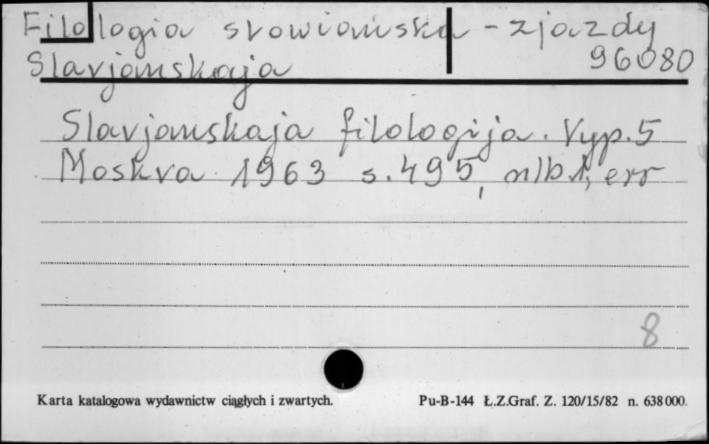 Filologia słowiańska - zjazdy
96080
Slavjanskaja
Slavjanskaja filologija. Vyp. 5
Moskva 1963 s. 495, nlb. 1, err
8
Karta katalogowa wydawnictw ciągłych i zwartych. Pu-B-144 Ł.Z.Graf. Z. 120/15/82 n. 638 000.